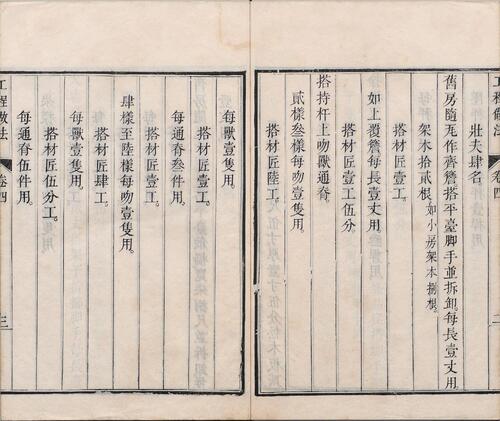 工程做法 卷四 二
壯夫肆名。
舊房隨瓦作齊簷搭平臺脚手並拆卸。每長壹丈用。
架木拾貳根。如小房架木捌根。
搭材匠壹工。
如上覆簷每長壹丈用。
搭材匠壹工伍分。
搭持杆上吻獸通脊。
貳樣叁樣每吻壹隻用。
搭材匠陸工。
每獸壹隻用。
搭材匠壹工。
每通脊叁件用。
搭材匠壹工。
肆樣至陸樣每吻壹隻用。
搭材匠肆工。
每獸壹隻用。
搭材匠伍分工。
每通脊伍件用。
工程做法 卷四 三